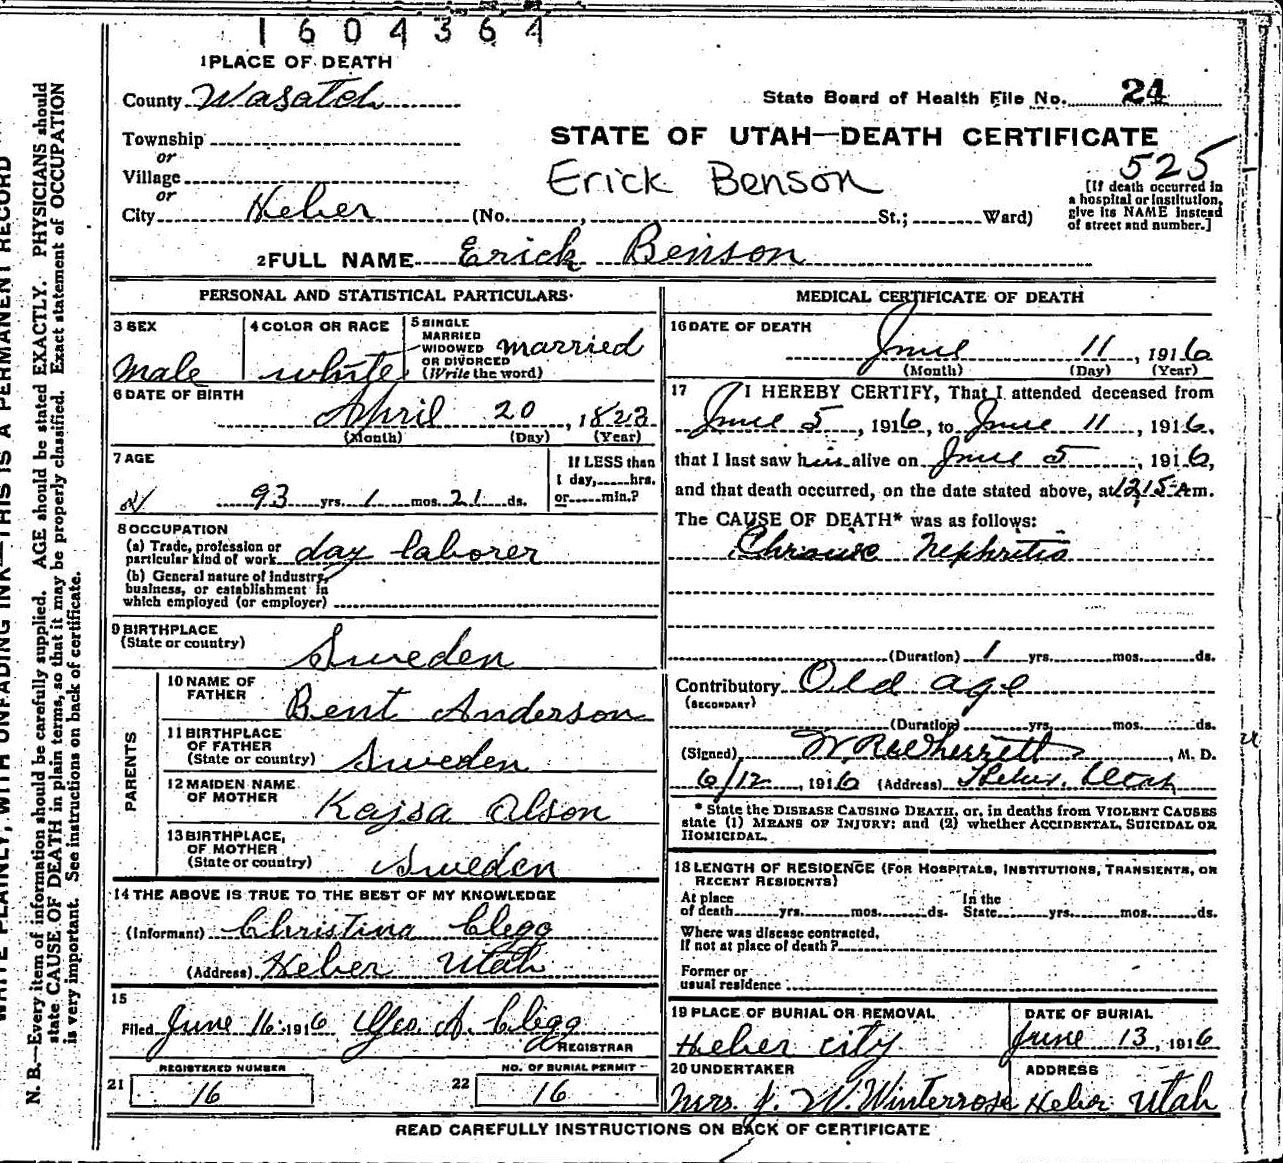 1604364
1 PLACE OF DEATH
County Wasatch
State Board of Health File No. 24
Township
or
STATE OF UTAH—DEATH CERTIFICATE
Village
or
Erick Benson
525
[If death occurred in a hospital or institution, give its NAME instead of street and number.]
City Heber (No. , St.; Ward)
2 FULL NAME Erick Benson
PERSONAL AND STATISTICAL PARTICULARS.
3 SEX
Male
4 COLOR OR RACE
white
5 SINGLE
MARRIED
WIDOWED
OR DIVORCED
(Write the word)
married
6 DATE OF BIRTH
April 20, 1823
(Month) (Day) (Year)
7 AGE
93 yrs. 1 mos. 21 ds.
If LESS than
1 day, hrs.
or min.?
8 OCCUPATION
(a) Trade, profession or
particular kind of work day laborer
(b) General nature of industry,
business, or establishment in
which employed (or employer)
9 BIRTHPLACE
(State or country)
Sweden
PARENTS
10 NAME OF
FATHER
Bent Anderson
11 BIRTHPLACE
OF FATHER
(State or country) Sweden
12 MAIDEN NAME
OF MOTHER
Kajsa Olson
13 BIRTHPLACE,
OF MOTHER
(State or country) Sweden
14 THE ABOVE IS TRUE TO THE BEST OF MY KNOWLEDGE
(Informant) Christina Clegg
(Address) Heber Utah
15
Filed June 16 1916 Geo A. Clegg
REGISTRAR
REGISTERED NUMBER
21 16
NO. OF BURIAL PERMIT
22 16
MEDICAL CERTIFICATE OF DEATH
16 DATE OF DEATH
June 11, 1916
(Month) (Day) (Year)
17 I HEREBY CERTIFY, That I attended deceased from
June 5, 1916, to June 11, 1916,
that I last saw him alive on June 5, 1916,
and that death occurred, on the date stated above, at 12,15 Am.
The CAUSE OF DEATH* was as follows:
Chronic Nephritis
(Duration) 1 yrs. mos. ds.
Contributory Old age
(SECONDARY)
(Duration) yrs. mos. ds.
(Signed) W. R. Wherritt, M. D.
6/12, 1916 (Address) Heber, Utah
* State the DISEASE CAUSING DEATH, or, in deaths from VIOLENT CAUSES
state (1) MEANS OF INJURY; and (2) whether ACCIDENTAL, SUICIDAL OR
HOMICIDAL.
18 LENGTH OF RESIDENCE (FOR HOSPITALS, INSTITUTIONS, TRANSIENTS, OR
RECENT RESIDENTS)
At place
of death yrs. mos. ds.
In the
State yrs. mos. ds.
Where was disease contracted,
if not at place of death?
Former or
usual residence
19 PLACE OF BURIAL OR REMOVAL
Heber city
DATE OF BURIAL
June 13, 1916
20 UNDERTAKER
Mrs. J. W. Winterrose
ADDRESS
Heber Utah
READ CAREFULLY INSTRUCTIONS ON BACK OF CERTIFICATE
WRITE PLAINLY, WITH UNFADING INK—THIS IS A PERMANENT RECORD
N. B.—Every item of information should be carefully supplied. AGE should be stated EXACTLY. PHYSICIANS should
state CAUSE OF DEATH in plain terms, so that it may be properly classified. Exact statement of OCCUPATION
is very important. See instructions on back of certificate.